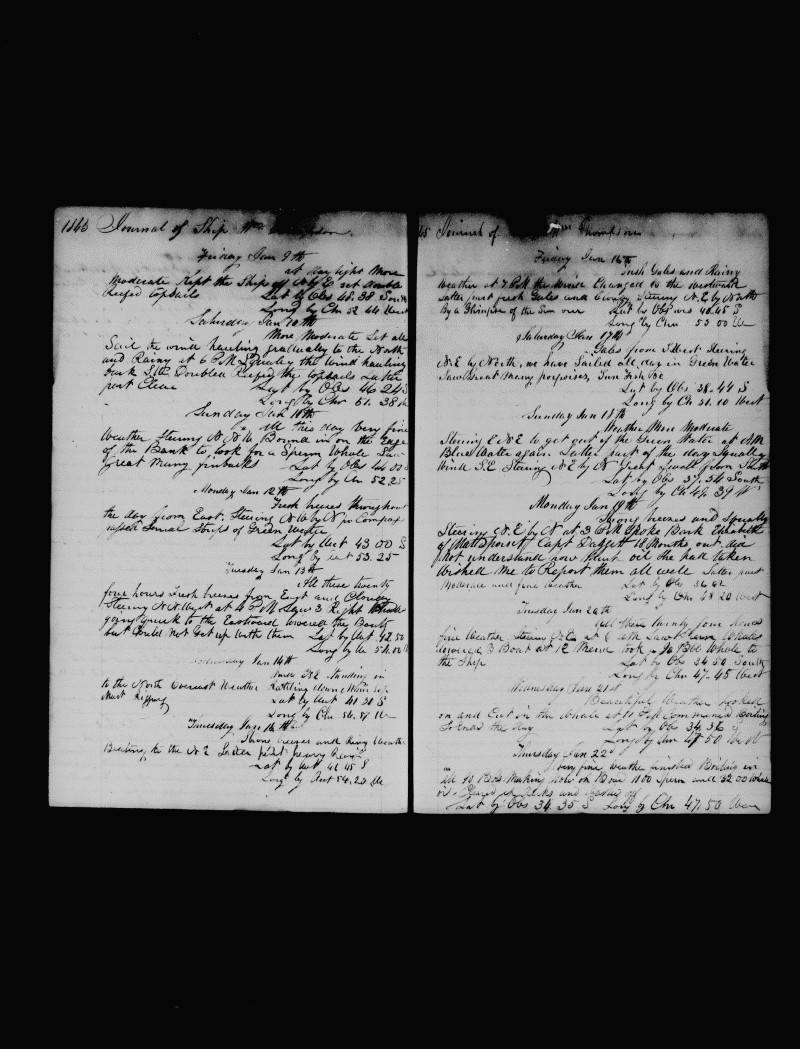 1845 Journal of Ship Wm
Friday Jan 9th
at day light More
Moderate Kept the Ship off N by E set double
Reefed topsails Lat by Obs 48.38 South
Long by Chr 52 44 West
Saturday Jan 10th
More Moderate Set all
Sail the wind hauling gradually to the North
and Rainy at 6 P.M Squally the Wind hauling
back Doubled Reefed the topsails Latter
part Clear Lat by Obs 46 24 S
Long by Chr 51.38 W
Sunday Jan 11th
All this day Very fine
Weather Steering N N W Bound in on the Edge
of the Bank to look for a Sperm Whale Saw
Great Many finbacks Lat by Obs 44 00 S
Long by Chr 52.25
Monday Jan 12th
Fresh breezes throughout
the day from East Steering N W by N pr Compass
passed Several Strips of Green Water
Lat by Aut 43 00 S
Long by Aut 53.25
Tuesday Jan 13th
All these twenty
four hours Fresh breezes from East and Cloudy
Steering N N West at 4 P M Saw 3 Right Whales
going quick to the Eastward lowered the Boats
but Could Not Get up With them Lat by Aut 42 50
Long by Au 54.00 W
Wednesday Jan 14th
Wind N E Standing in
to the North Overcast Weather Rattling down Main top
Mast Rigging Lat by Aut 41 38 S
Long by Chr W
Thursday Jan 15th
Strong breezes and Rainy Weather
Heading to the N E Latter part heavy
Lat by Aut 41 45 S
Long by Aut 54.20 W
45 Journal of Wm Thompson
Friday Jan 16th
Fresh Gales and Rainy
Weather at 7 P.M the Wind Changed to the Westward
Latter part fresh Gales and Steering N.E by North
By a Glimpse of the Sun our Lat by Obs was 40.45 S
Long by Chr 53 00 W
Saturday Jan 17th
Gales from S West Steering
N.E by North, we have Sailed all day in Green Water
Saw Great Many porpoises,
Lat by Obs 38.44 S
Long by Ch 51.10 West
Sunday Jan 18th
Weather More Moderate
Steering E N E to get out of the Green Water at A.M
Blue Water again Latter part of the day Squally
Wind S.E Steering N.E by N Great Swell from South
Lat by Obs 37.34 South
Long by Ch 49.39 W
Monday Jan 19th
Strong breezes and Squally
Steering N.E by N at 3 P.M Spoke Bark Elizabeth
of Mattapoisett Capt Daggett Months out did
Not understand how Much oil she had taken
Wished Me to Report them all well Latter part
Moderate and fine Weather Lat by Obs 36 02
Long by Chr 48 20 West
Tuesday Jan 20th
All these twenty four hours
fine Weather at 6 A.M Saw Sperm Whales
lowered 3 Boats at 12 Merid took Whale to
the Ship Lat by Obs 34 50 South
Long by Ch 47.45 West
Wednesday Jan 21st
Beautiful Weather hooked
on and Cut in the Whale at P.M Commenced Boiling
So Ends the day Lat by Obs 34.36 S
Long by Chr 47 50 West
Thursday Jan 22d
very fine Weather finished Boiling in
all Bbls Making Now on Board 1100 Sperm and 3200 Whale
oil Cleared up decks and
Lat by Obs 34.35 S Long by Chr 47.50 West